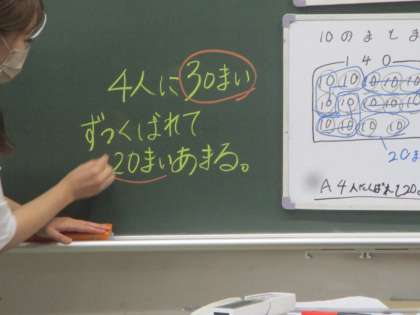 4人に30まい
ずつくばれて
20まいあまる。
10のまとま
140
10 10 10 10 10
10 10 10 10 10
10 10 10 10
20ま
A 4人にくばれて20ま